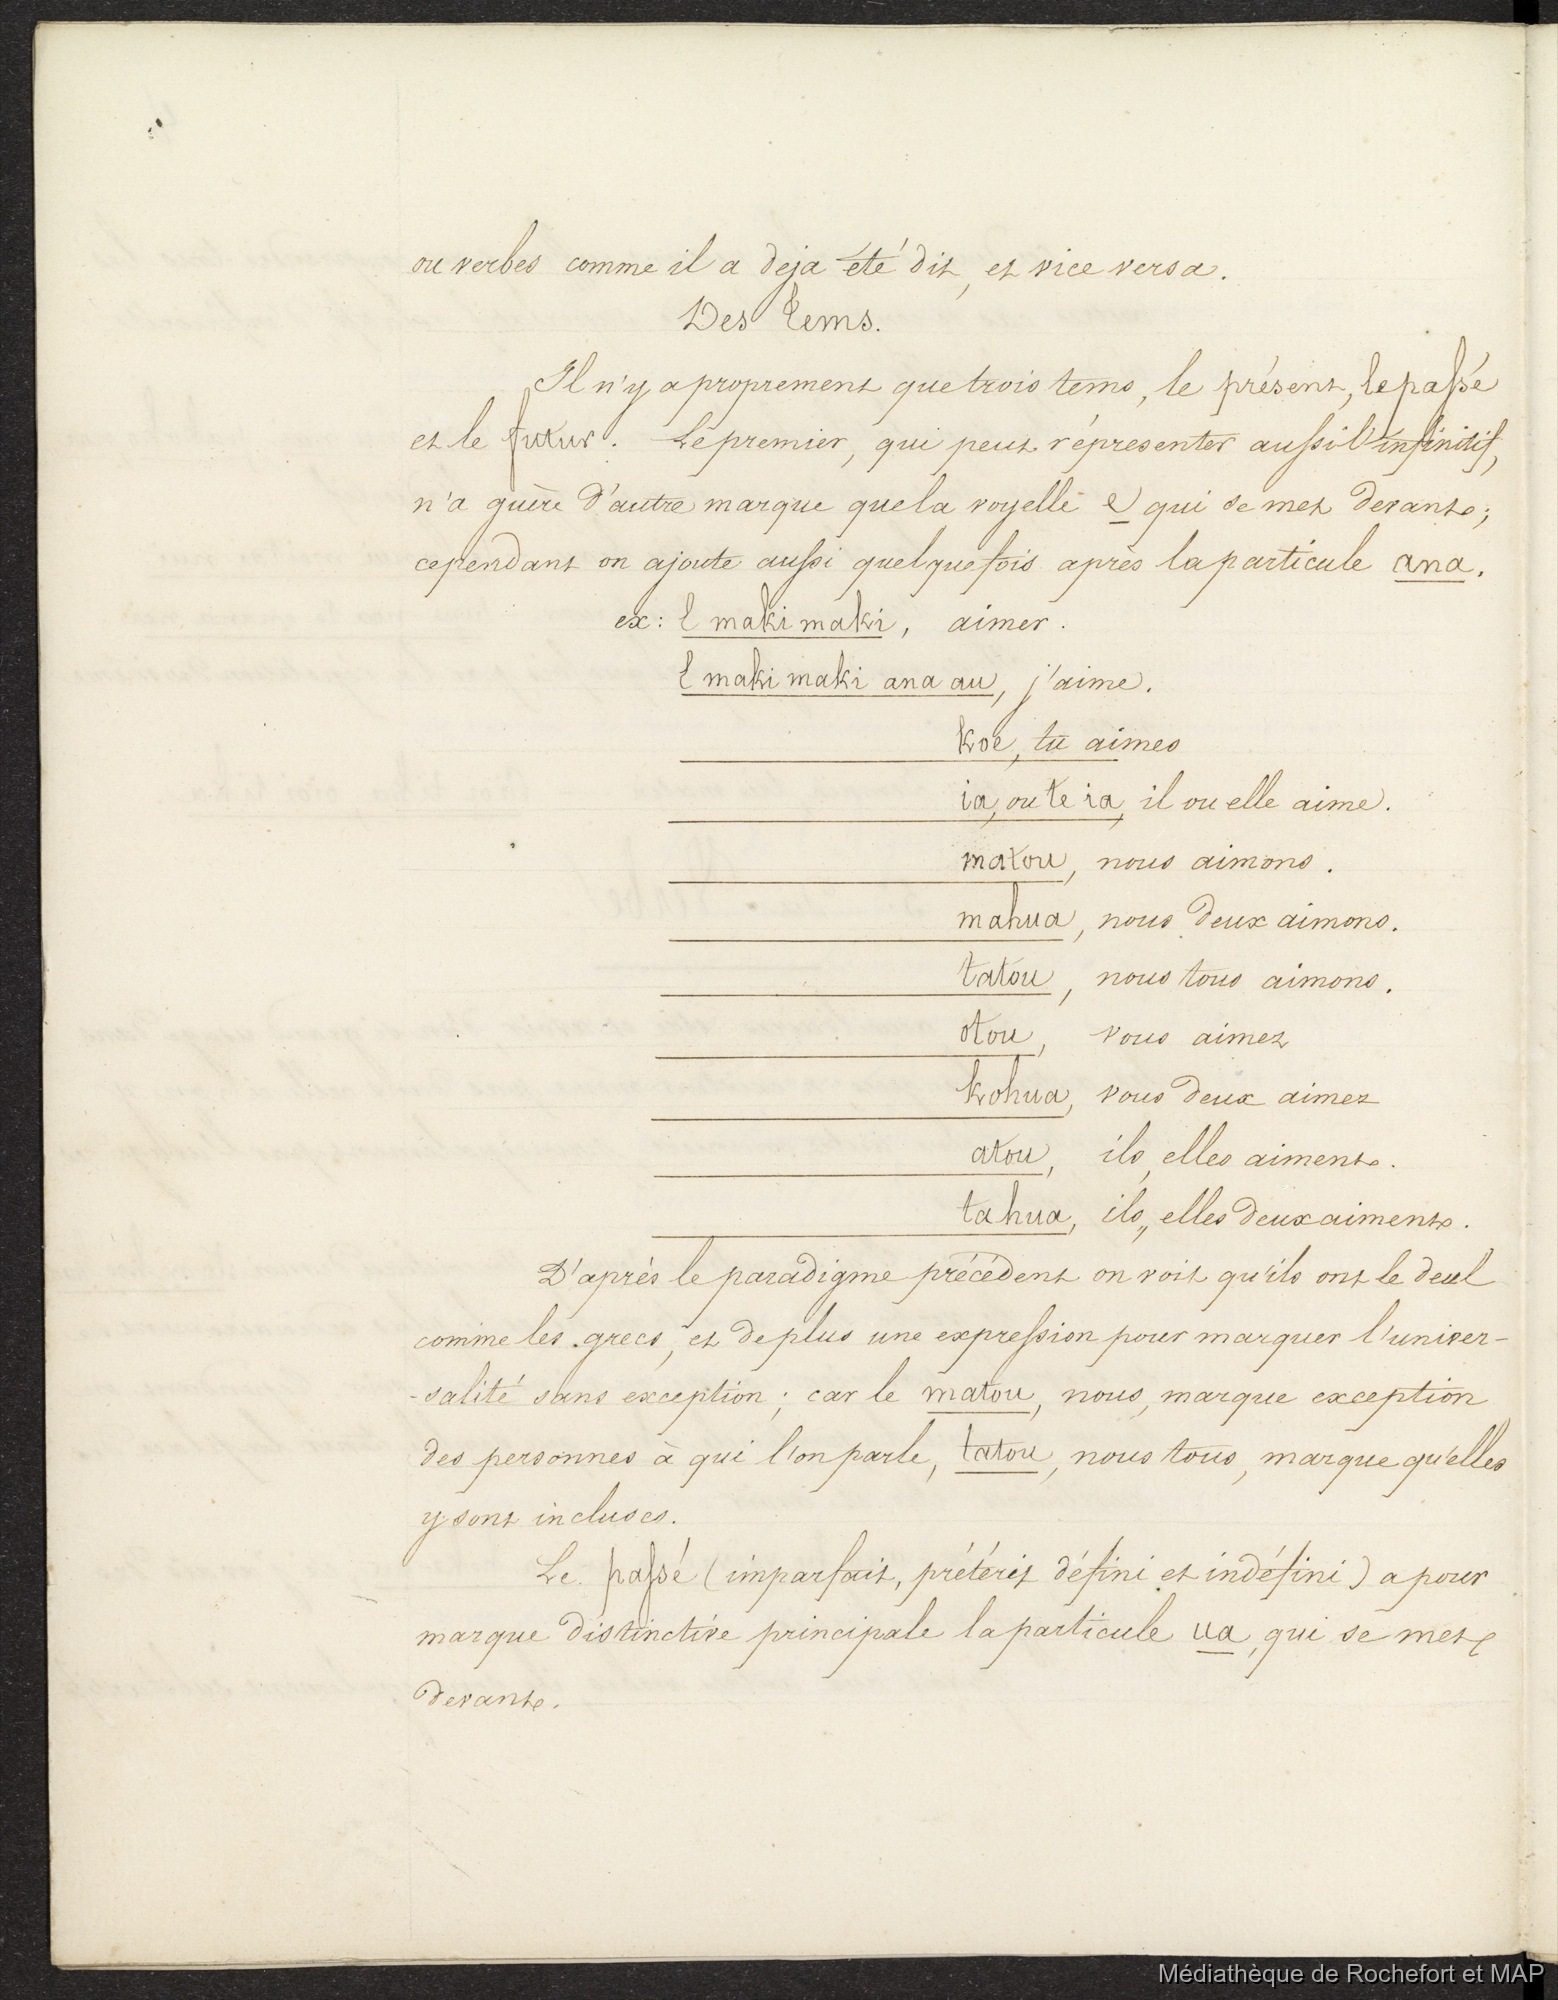 ou verbes comme il a deja été dit, et vice versa.
Des tems.
Il n'y a proprement que trois tems, le présent, le passé
et le futur. Le premier, qui peut réprésenter aussi l'infinitif,
n'a guère d'autre marque que la voyelle e qui se met devant;
cependant on ajoute aussi quelquefois après la particule ana.
ex: E maki maki, aimer.
E maki maki ana au, j'aime.
koe, tu aimes
ia, ou te ia, il ou elle aime.
matou, nous aimons.
mahua, nous deux aimons.
tatou, nous tous aimons.
otou, vous aimez
kohua, vous deux aimez
atou, ils, elles aiment.
tahua, ils, elles deux aiment.
D'après le paradigme précédent on voit qu'ils ont le deul
comme les grecs, et de plus une expression pour marquer l'univer-
-salité sans exception; car le matou, nous, marque exception
des personnes à qui l'on parle, tatou, nous tous, marque qu'elles
y sont incluses.
Le passé (imparfait, prétérit défini et indéfini) a pour
marque distinctive principale la particule ua, qui se met
devant.
Médiathèque de Rochefort et MAP